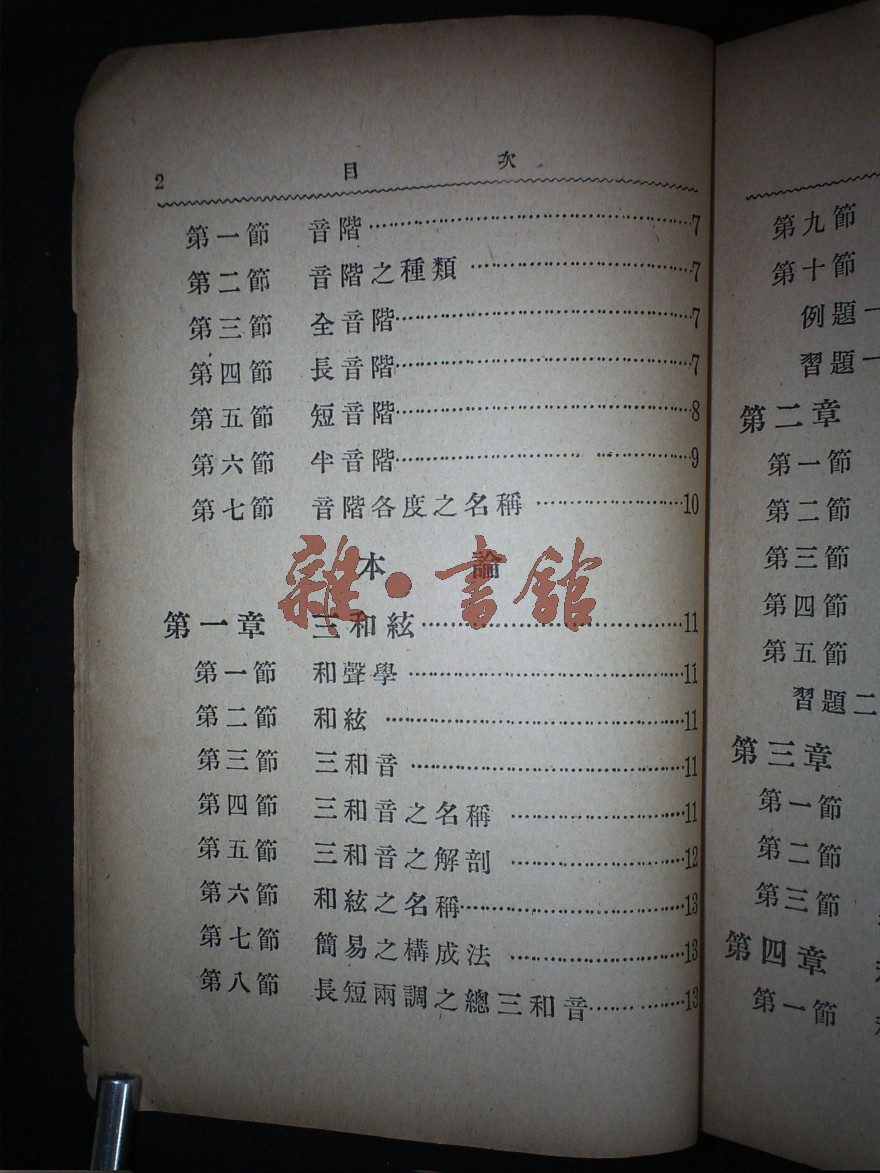 2 目 次
第一節 音階……7
第二節 音階之種類……7
第三節 全音階……7
第四節 長音階……7
第五節 短音階……8
第六節 半音階……9
第七節 音階各度之名稱……10
本 論
雜·書館
第一章 三和絃……11
第一節 和聲學……11
第二節 和絃……11
第三節 三和音……11
第四節 三和音之名稱……11
第五節 三和音之解剖……12
第六節 和絃之名稱……13
第七節 簡易之構成法……13
第八節 長短兩調之總三和音……13
第九節
第十節
例題一
習題一
第二章
第一節
第二節
第三節
第四節
第五節
習題二
第三章
第一節
第二節
第三節
第四章
第一節